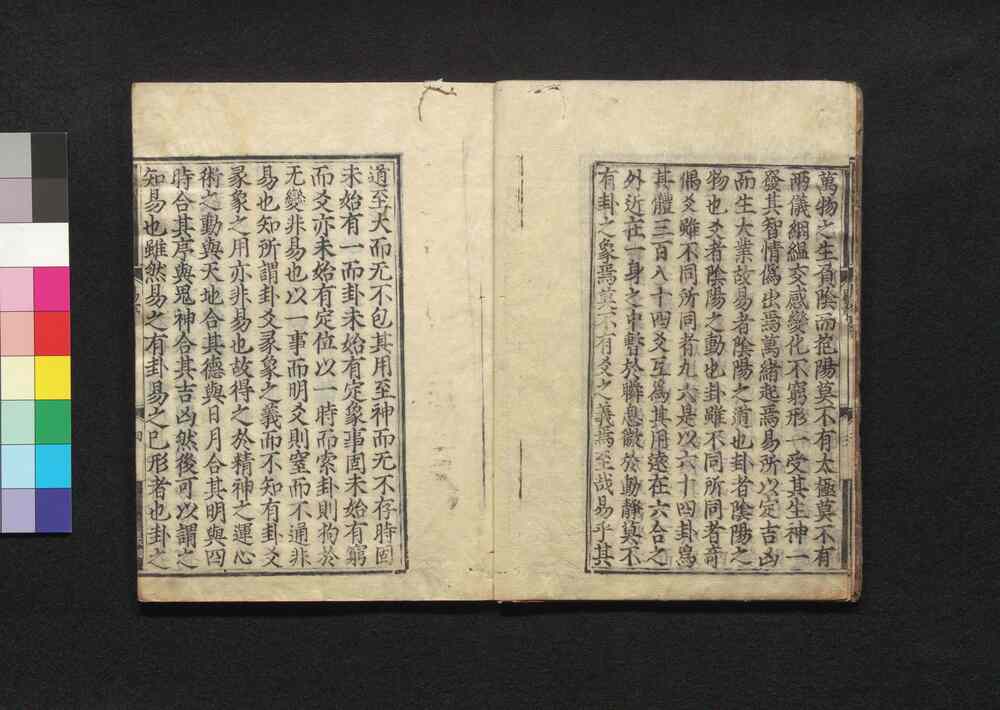 萬物之生負陰而抱陽莫不有太極莫不有
兩儀絪縕交感變化不窮形一受其生神一
發其智情僞出焉萬緖起焉易所以定吉凶
而生大業故易者陰陽之道也卦者陰陽之
物也爻者陰陽之動也卦雖不同所同者竒
偶爻雖不同所同者九六是以六十四卦爲
其體三百八十四爻互爲其用遠在六合之
外近在一身之中暫於瞬息微於動靜莫不
有卦之象焉莫不有爻之義焉至哉易乎其
道至大而无不包其用至神而无不存時固
未始有一而卦未始有定象事固未始有窮
而爻亦未始有定位以一時而索卦則拘於
无變非易也以一事而明爻則窒而不通非
易也知所謂卦爻彖象之義而不知有卦爻
彖象之用亦非易也故得之於精神之運心
術之動與天地合其德與日月合其明與四
時合其序與鬼神合其吉凶然後可以謂之
知易也雖然易之有卦易之已形者也卦之